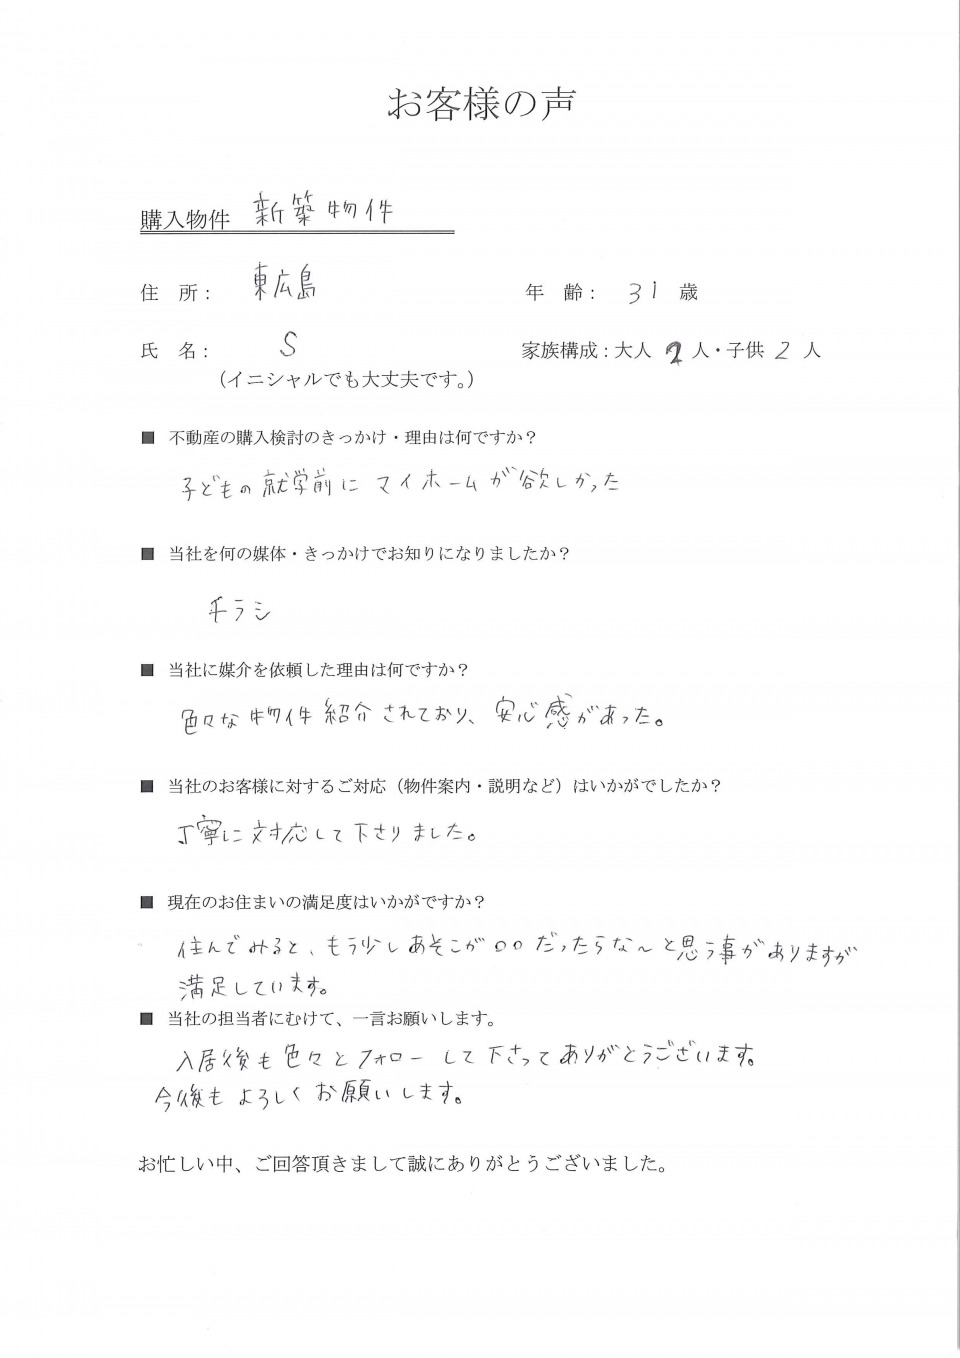 お客様の声
購入物件 新築物件
住 所： 東広島 年 齢： 31 歳
氏 名： S 家族構成：大人 2 人・子供 2 人
（イニシャルでも大丈夫です。）
■ 不動産の購入検討のきっかけ・理由は何ですか？
子どもの就学前に マイホームが欲しかった
■ 当社を何の媒体・きっかけでお知りになりましたか？
チラシ
■ 当社に媒介を依頼した理由は何ですか？
色々な物件紹介されており、安心感があった。
■ 当社のお客様に対するご対応（物件案内・説明など）はいかがでしたか？
丁寧に対応して下さりました。
■ 現在のお住まいの満足度はいかがですか？
住んでみると、もう少しあそこが○○だったらな～と思う事がありますが
満足しています。
■ 当社の担当者にむけて、一言お願いします。
入居後も色々とフォローして下さってありがとうございます。
今後もよろしくお願いします。
お忙しい中、ご回答頂きまして誠にありがとうございました。